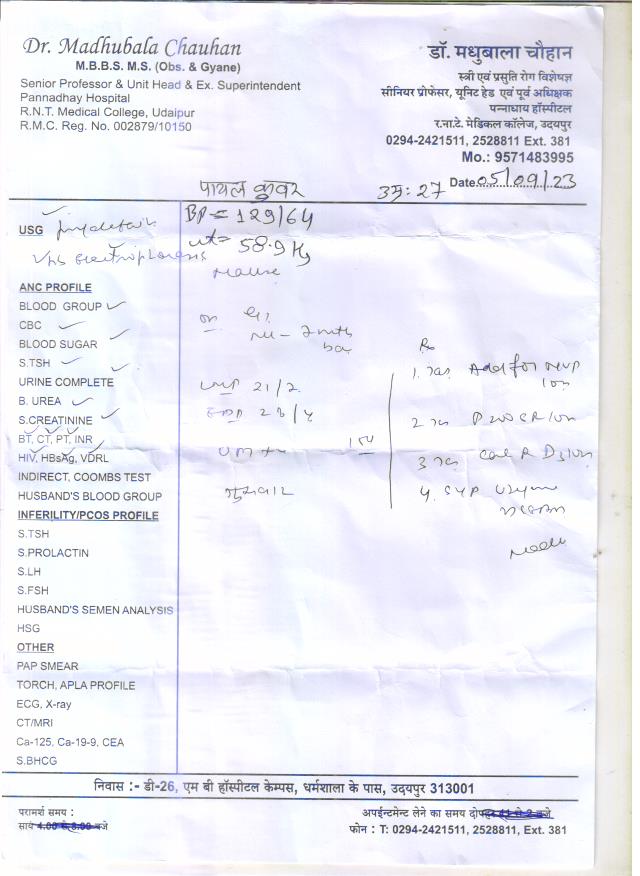 Dr. Madhubala Chauhan
M.B.B.S. M.S. (Obs. & Gyane)
Senior Professor & Unit Head & Ex. Superintendent
Pannadhay Hospital
R.N.T. Medical College, Udaipur
R.M.C. Reg. No. 002879/10150
डॉ. मधुबाला चौहान
स्त्री एवं प्रसुति रोग विशेषज्ञ
सीनियर प्रोफेसर, यूनिट हेड एवं पूर्व अधिक्षक
पन्नाधाय हॉस्पीटल
र.ना.टे. मेडिकल कॉलेज, उदयपुर
0294-2421511, 2528811 Ext. 381
Mo.: 9571483995
पायल कुवर उम्र: 27 Date 05/09/23
BP = 129/64
wt = 58.9 Kg
USG
ANC PROFILE
BLOOD GROUP
CBC
BLOOD SUGAR
S.TSH
URINE COMPLETE
B. UREA
S.CREATININE
BT, CT, PT, INR
HIV, HBsAg, VDRL
INDIRECT, COOMBS TEST
HUSBAND'S BLOOD GROUP
INFERILITY/PCOS PROFILE
S.TSH
S.PROLACTIN
S.LH
S.FSH
HUSBAND'S SEMEN ANALYSIS
HSG
OTHER
PAP SMEAR
TORCH, APLA PROFILE
ECG, X-ray
CT/MRI
Ca-125, Ca-19-9, CEA
S.BHCG
LMP 21/2
गुरुवार
Rx
1.
2
3
4. Syp
निवास :- डी-26, एम बी हॉस्पीटल केम्पस, धर्मशाला के पास, उदयपुर 313001
परामर्श समय :
सायं 4.00 से 8.00 बजे
अपईन्टमेन्ट लेने का समय दोपहर 11 से 2 बजे
फोन : T: 0294-2421511, 2528811, Ext. 381